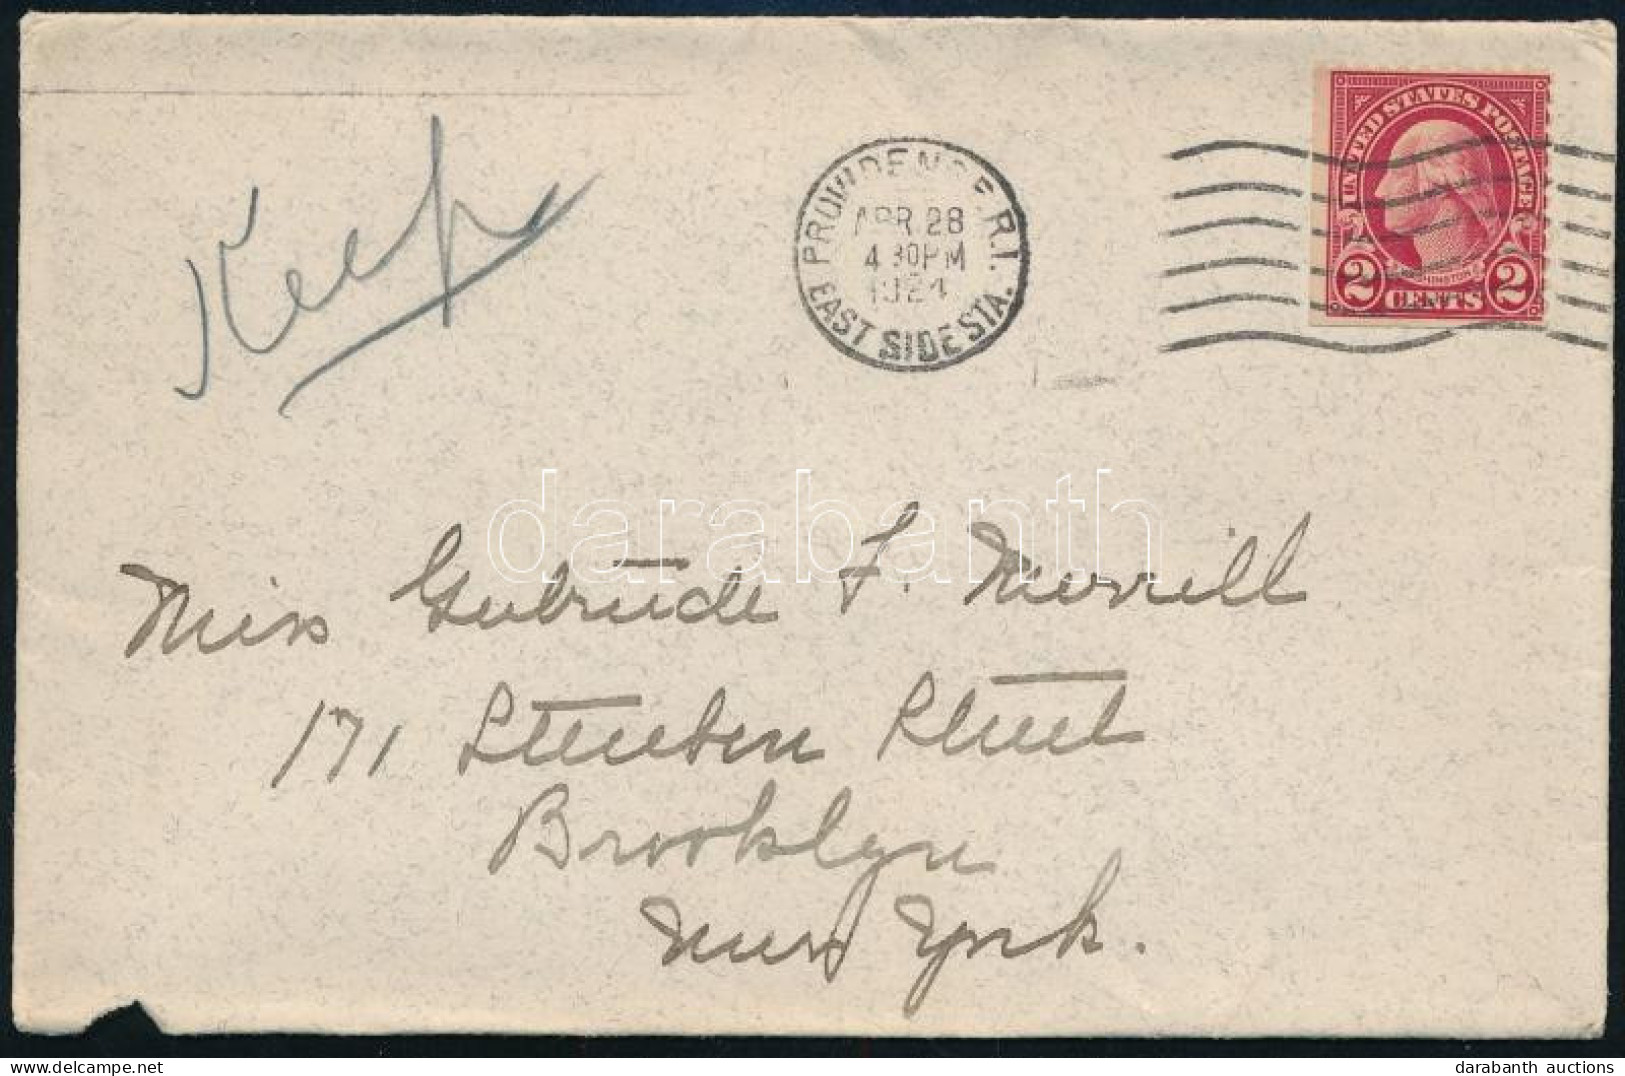 Keep
PROVIDENCE, R.I.
APR 28
4 30 PM
1924
EAST SIDE STA.
UNITED STATES POSTAGE
WASHINGTON
2 CENTS 2
darabanth
Miss Gertrude F. Merrill
171 Steuben Street
Brooklyn
New York.
darabanth auctions